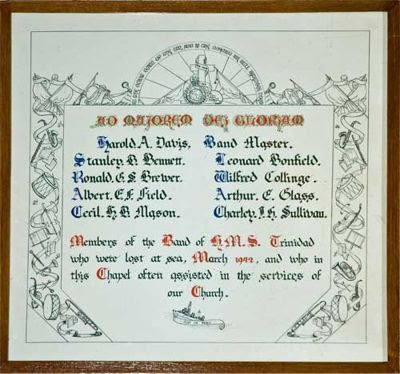 AD MAJOREM DEI GLORIAM
Harold. A. Davis, Band Master.
Stanley. B. Bennett. Leonard Bonfield.
Ronald. G. S. Brewer. Wilfred Collinge.
Albert. E. F. Field. Arthur. E. Glass.
Cecil. H. B. Mason. Charley. J. H. Sullivan.
Members of the Band of H.M.S. Trinidad
who were lost at sea, March 1942, and who in
this Chapel often assisted in the services of
our Church.